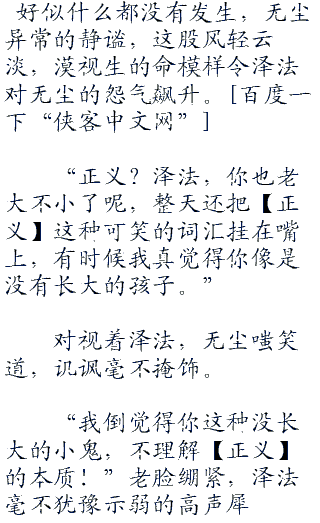 好似什么都没有发生，无尘
异常的静谧，这股风轻云
淡，漠视生的命模样令泽法
对无尘的怨气飙升。[百度一
下“侠客中文网”]
“正义？泽法，你也老
大不小了呢，整天还把【正
义】这种可笑的词汇挂在嘴
上，有时候我真觉得你像是
没有长大的孩子。”
对视着泽法，无尘嗤笑
道，讥讽毫不掩饰。
“我倒觉得你这种没长
大的小鬼，不理解【正义】
的本质！”老脸绷紧，泽法
毫不犹豫示弱的高声犀